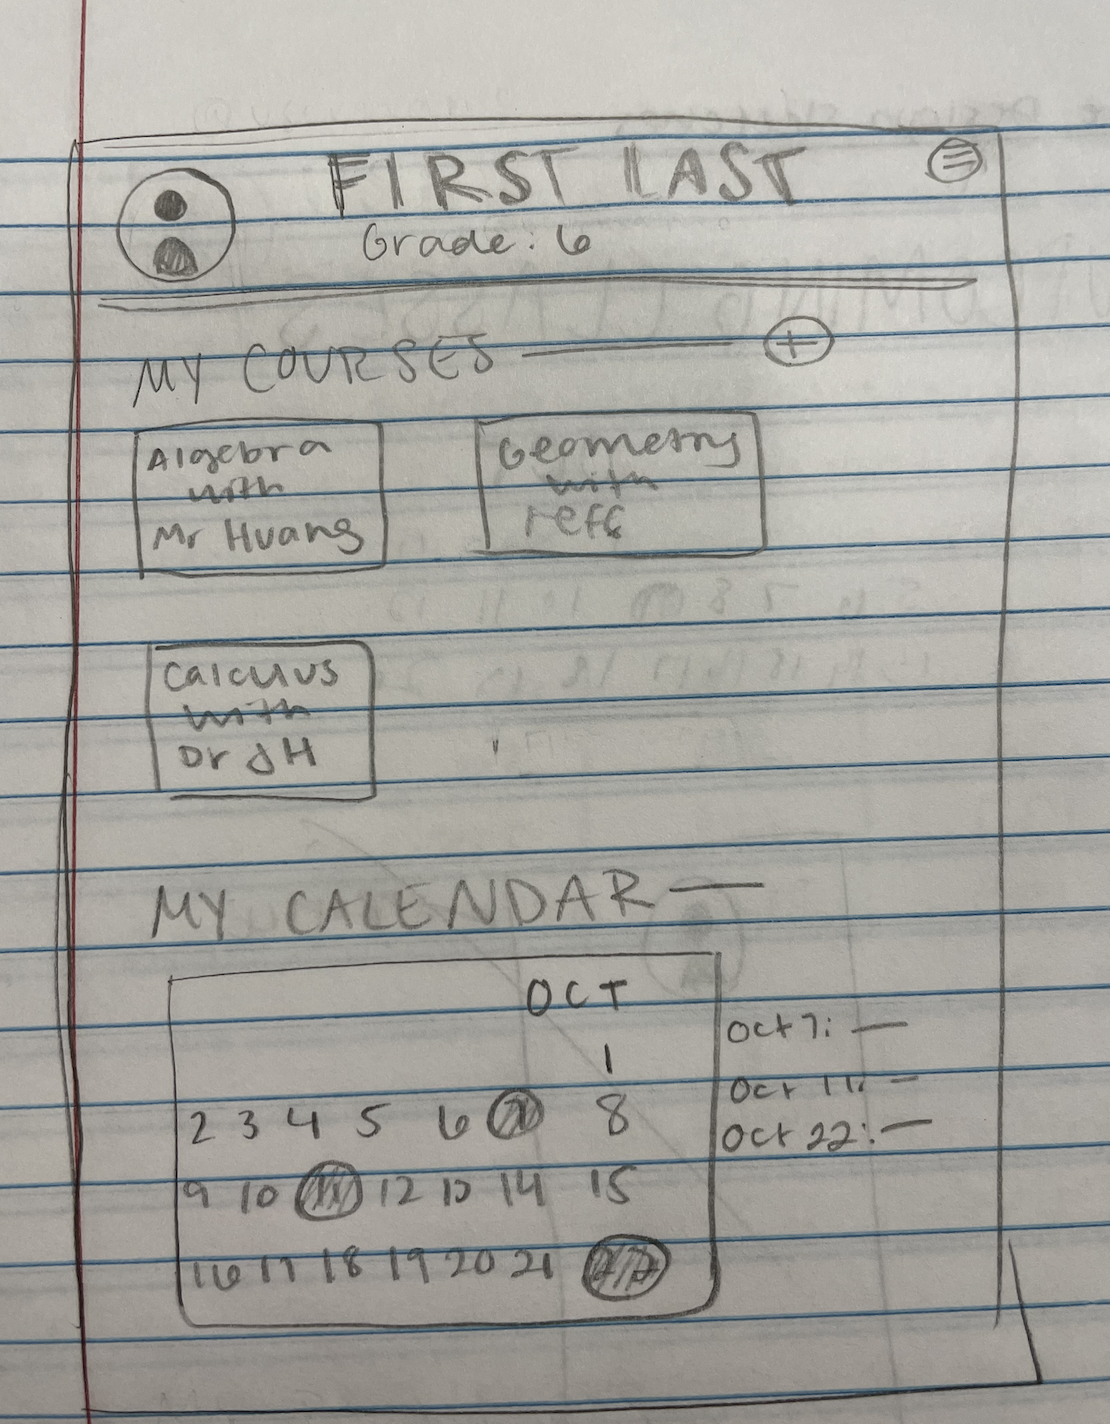 FIRST LAST
Grade: 6
MY COURSES
Algebra
with
Mr Huang
Geometry
with
Calculus
with
Dr JH
MY CALENDAR
OCT
1
2 3 4 5 6 7 8
9 10 11 12 13 14 15
16 17 18 19 20 21 22
Oct 7: —
Oct 11: —
Oct 22: —